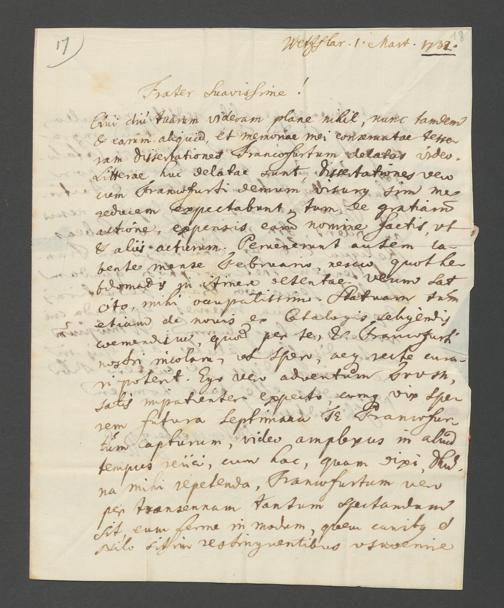 17
18
Wetzlar. 1. Mart. 1732.
Frater Suavissime!
Qui diu tuarum videram plane nihil, nunc tandem
& earum aliquid, et memoriae mei conservatae tesse-
ram Dissertationes Francofurtum delatas video.
Litterae huc delatae sunt, dissertationes vero
cum Francofurti demum visurus sim me
reducem expectabunt, tum & gratiam
actione, expensis eam nomine factis, ut
& aliis acturum. Pervenerunt autem la-
bente mense Februario, nescio quot heb-
domades in itinere detentae, verum sat
cito, mihi occupatissimo. Statuam tum
etiam de novis ex Catalogis
coemendis, quod per te, & Francofurti
nostri, ut spero, aeque recte cura-
ri potest. Ego vero adventum
satis impatienter expecto cumque vix spe-
rem futura septimana te Francofur-
tum capturum, video amplexus in aliud
tempus reiici, cum hac, quam dixi,
na mihi repetenda, Francofurtum vero
per transennam tantum spectandum
sit, eum ferme in modum, quem
sitim restinguentibus